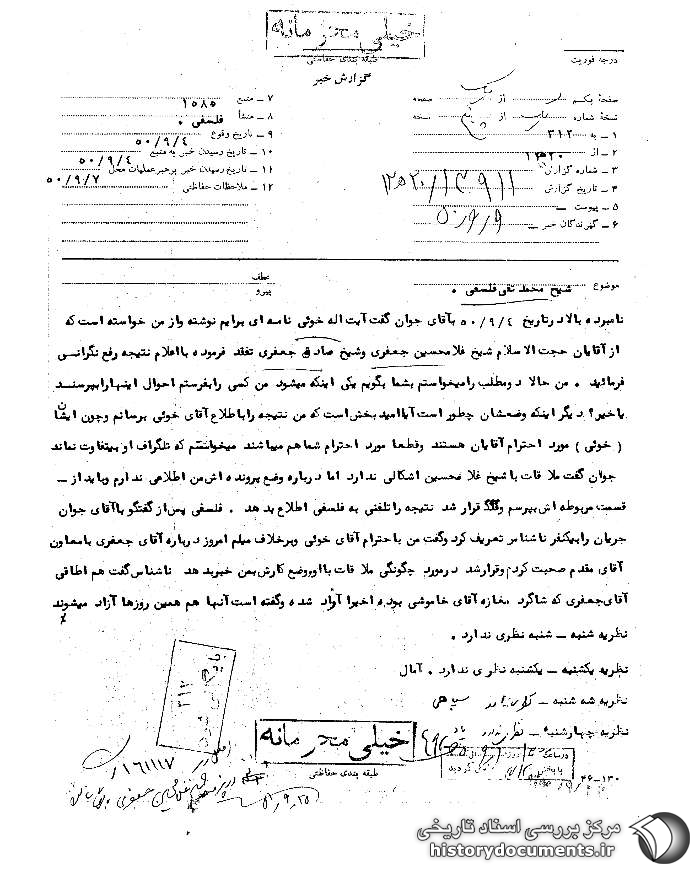 خیلی محرمانه
طبقه بندی حفاظتی
گزارش خبر
درجه فوریت
صفحهٔ یکم از یک صفحه
نسخهٔ شماره از پنج نسخه
۱ ــ به ۳۱۲
۲ ــ از ۲۰ه۱۲
۳ ــ شماره گزارش
۴ ــ تاریخ گزارش
۵ ــ پیوست
۶ ــ گیرندگان خبر
۷ ــ منبع ۱۰۸۵
۸ ــ منشأ فلسفی ۰
۹ ــ تاریخ وقوع ۵۰/۹/۴
۱۰ ــ تاریخ رسیدن خبر به منبع ۵۰/۹/۴
۱۱ ــ تاریخ رسیدن خبر برهبر عملیات محل ۵۰/۹/۷
۱۲ ــ ملاحظات حفاظتی
موضوع شیخ محمد تقی فلسفی ۰
عطف
پیرو
نامبرده بالا در تاریخ ۵۰/۹/۴ بآقای جوان گفت آیت اله خوئی نامه ای برایم نوشته و از من خواسته است که
از آقایان حجت الاسلام شیخ غلامحسین جعفری و شیخ صادق جعفری تفقد فرموده با اعلام نتیجه رفع نگرانی
فرمائید ۰ من حالا دو مطلب را میخواستم بشما بگویم یکی اینکه میشود من کسی را بفرستم احوال اینها را بپرسند
یا خیر؟ دیگر اینکه وضعشان چطور است آیا امید بخش است که من نتیجه را باطلاع آقای خوئی برسانم و چون ایشان
( خوئی ) مورد احترام آقایان هستند و قطعا مورد احترام شما هم میباشند میخواستم که تلگراف او بیتفاوت نماند
جوان گفت ملاقات با شیخ غلامحسین اشکالی ندارد اما درباره وضع پرونده اش من اطلاعی ندارم و باید از ــ
قسمت مربوطه اش بپرسم و قرار شد نتیجه را تلفنی به فلسفی اطلاع بدهد ۰ فلسفی پس از گفتگو با آقای جوان
جریان را بیکنفر ناشناس تعریف کرد و گفت من با احترام آقای خوئی و برخلاف میلم امروز درباره آقای جعفری با معاون
آقای مقدم صحبت کردم و قرار شد در مورد چگونگی ملاقات با او و وضع کارش بمن خبر بدهد ناشناس گفت هم اطاقی
آقای جعفری که شاگرد مغازه آقای خاموشی بوده اخیرا آزاد شده و گفته است آنها هم همین روزها آزاد میشوند
نظریه شنبه ــ شنبه نظری ندارد ۰
نظریه یکشنبه ــ یکشنبه نظری ندارد ۰ آمال
نظریه سه شنبه ــ
نظریه چهارشنبه ــ نظری ندارد
خیلی محرمانه
طبقه بندی حفاظتی
۱۶۱۱۱۷
۵۰/۹/۲۵
۴۶-۱۳۰
مرکز بررسی اسناد تاریخی
historydocuments.ir